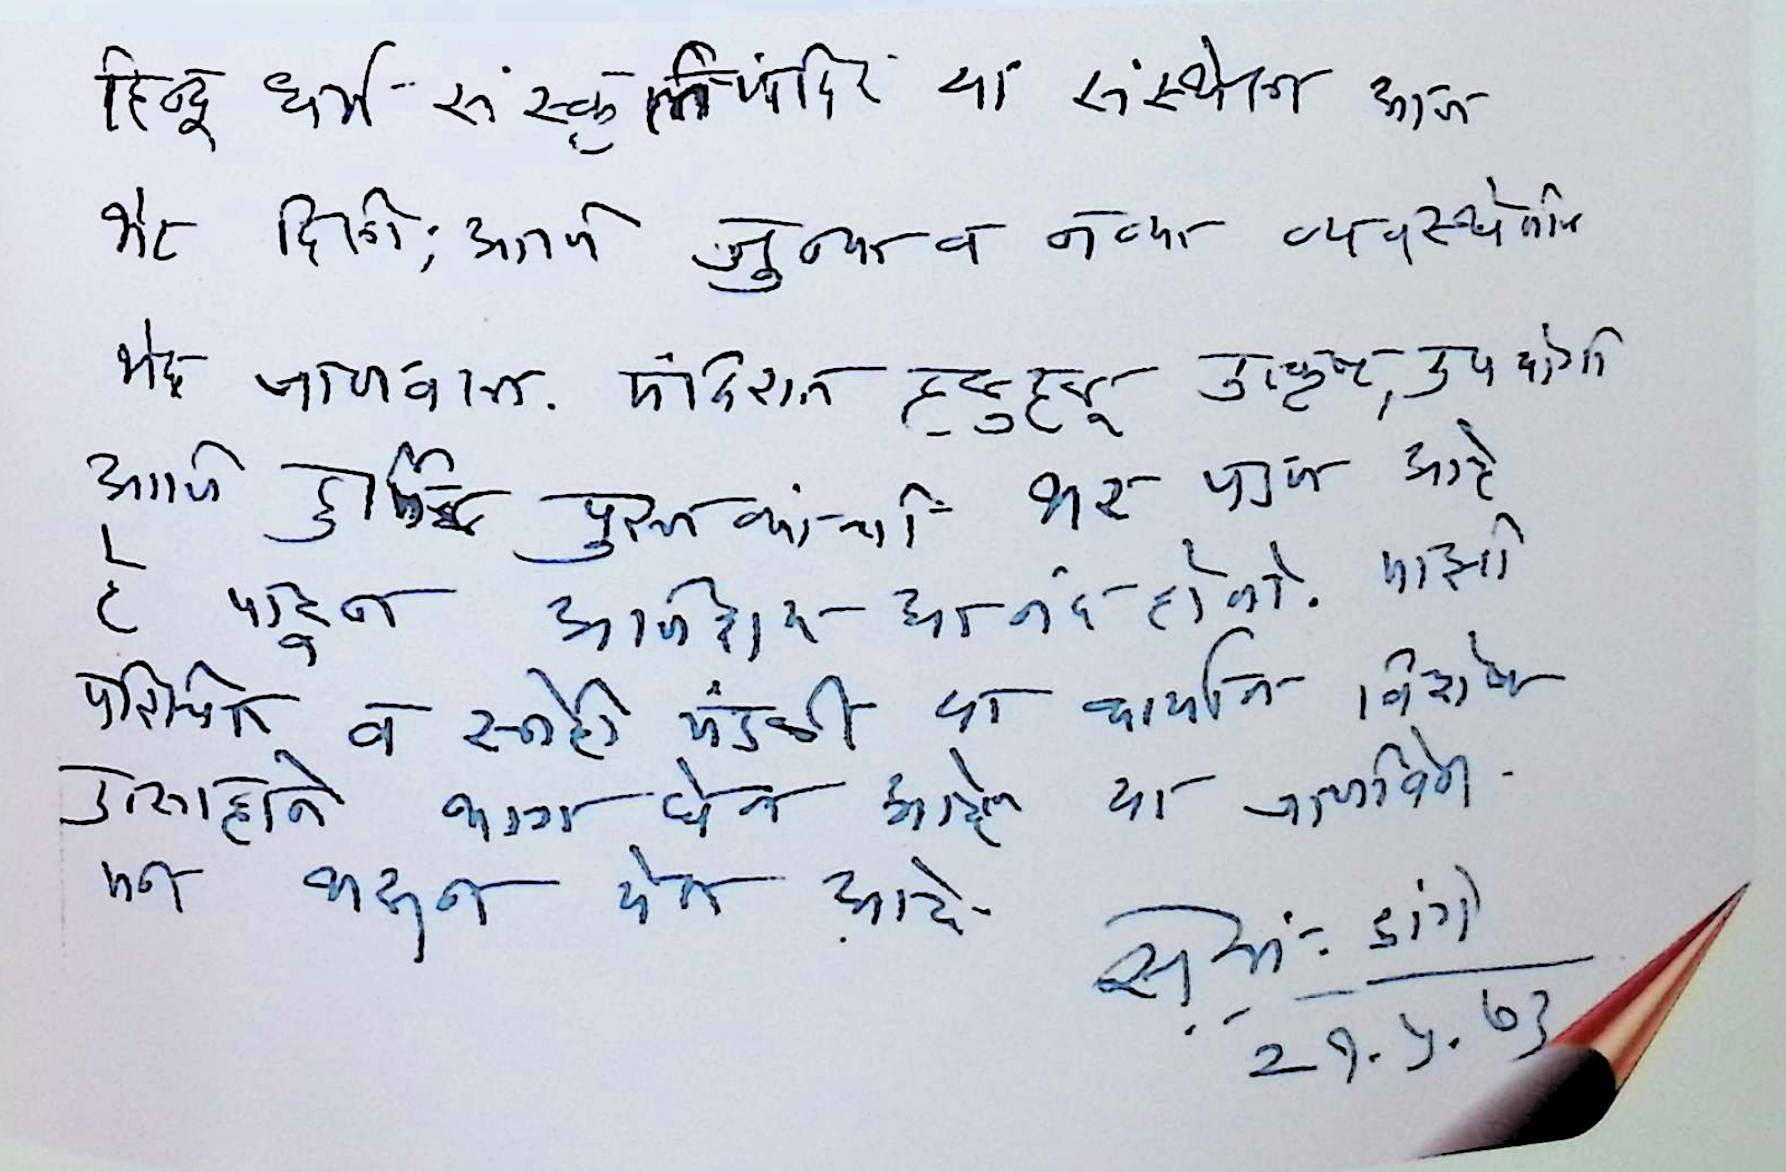 हिन्दू धर्म-संस्कृति मंदिर या संस्थेला आज
भेट दिली; आणि जुन्या व नव्या व्यवस्थेतील
भेद जाणवला. मंदिरात हळुहळू उत्कृष्ट, उपयोगी
आणि दुर्मिळ पुस्तकांची भर पडत आहे
हे पाहून अतिशय आनंद होतो. माझी
परिचित व स्नेही मंडळी या कार्यात विशेष
उत्साहाने भाग घेत आहेत या जाणिवेने
मन भरून येत आहे.
डांगे
२९.५.७३